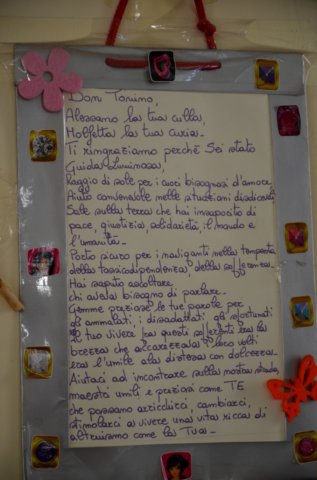 Don Tonino,
Alessano la tua culla,
Molfetta la tua curia.
Ti ringraziamo perchè Sei stato
Guida Luminosa,
Raggio di sole per i cuori bisognosi d'amore
Aiuto nelle situazioni
Sale sulla terra che hai insaporito di
pace, giustizia, solidarietà il mondo e
l'umanità.
Porto sicuro per i naviganti nella tempesta
della tossicodipendenza, della sofferenza.
Hai saputo ascoltare
chi aveva bisogno di parlare.
Gemme preziose le tue parole per
gli ammalati, i disadattati gli sfortunati
Il tuo vivere tra questi sofferenti era la
brezza che accarezzava i loro volti
era l'umile
Aiutaci ad incontrare sulla nostra strada,
maestri umili e preziosi come TE
che possano arricchirci, cambiarci,
stimolarci a vivere una vita ricca di
altruismo come la Tua.